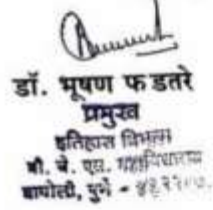 डॉ. भूषण फडतरे
प्रमुख
इतिहास विभाग
बी. जे. एस. महाविद्यालय
वाघोली, पुणे -